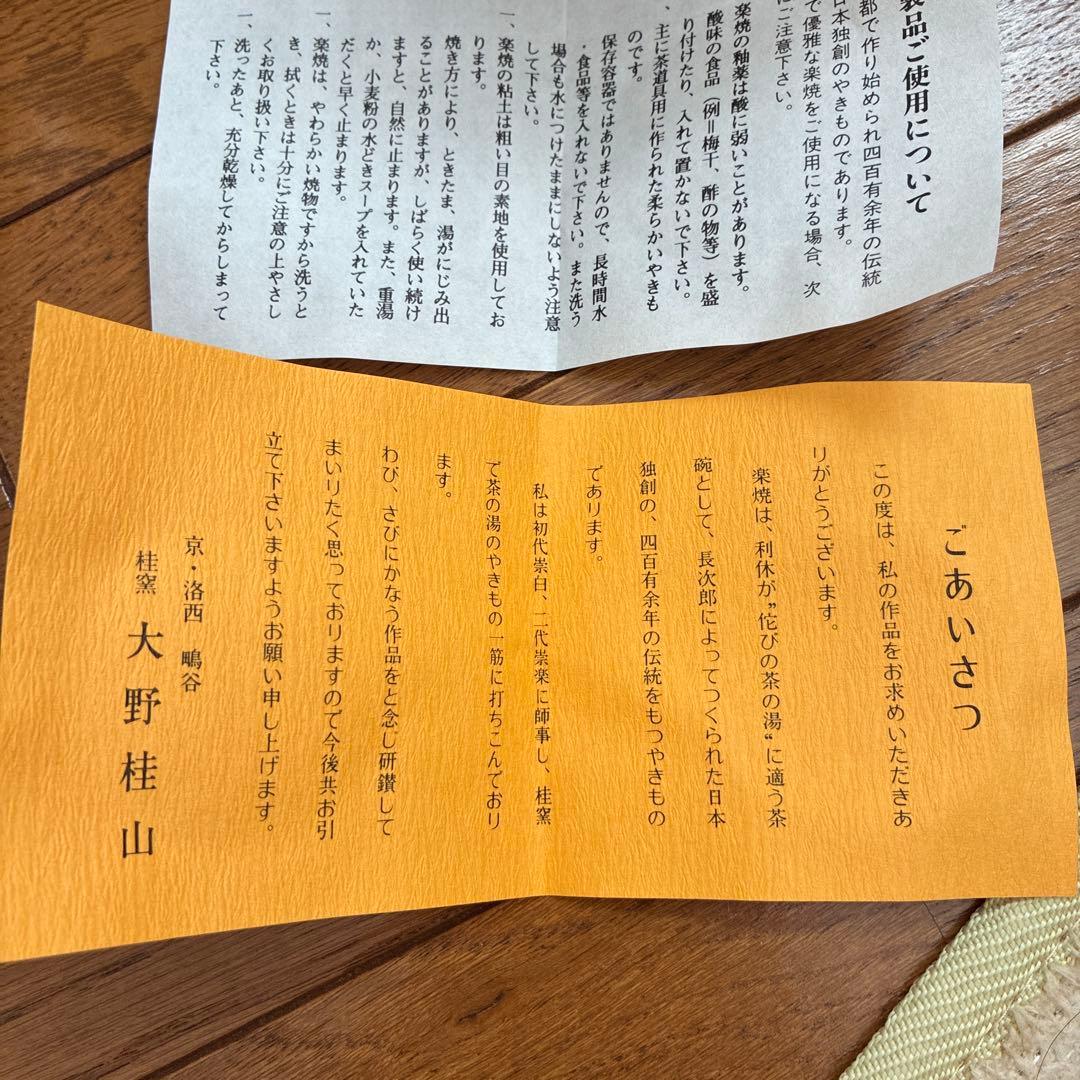 製品ご使用について
都で作り始められ四百有余年の伝統
日本独創のやきものであります。
で優雅な楽焼をご使用になる場合、次
にご注意下さい。
楽焼の釉薬は酸に弱いことがあります。
酸味の食品（例＝梅干、酢の物等）を盛
り付けたり、入れて置かないで下さい。
、主に茶道具用に作られた柔らかいやきも
のです。
保存容器ではありませんので、長時間水
・食品等を入れないで下さい。また洗う
場合も水につけたままにしないよう注意
して下さい。
一、楽焼の粘土は粗い目の素地を使用してお
ります。
焼き方により、ときたま、湯がにじみ出
ることがありますが、しばらく使い続け
ますと、自然に止まります。また、重湯
か、小麦粉の水どきスープを入れていた
だくと早く止まります。
一、楽焼は、やわらかい焼物ですから洗うと
き、拭くときは十分にご注意の上やさし
くお取り扱い下さい。
一、洗ったあと、充分乾燥してからしまって
下さい。
ごあいさつ
この度は、私の作品をお求めいただきあ
りがとうございます。
楽焼は、利休が〝侘びの茶の湯〟に適う茶
碗として、長次郎によってつくられた日本
独創の、四百有余年の伝統をもつやきもの
であります。
私は初代崇白、二代崇楽に師事し、桂窯
で茶の湯のやきもの一筋に打ちこんでおり
ます。
わび、さびにかなう作品をと念じ研鑚して
まいりたく思っておりますので今後共お引
立て下さいますようお願い申し上げます。
京・洛西 鴫谷
桂窯 大野桂山